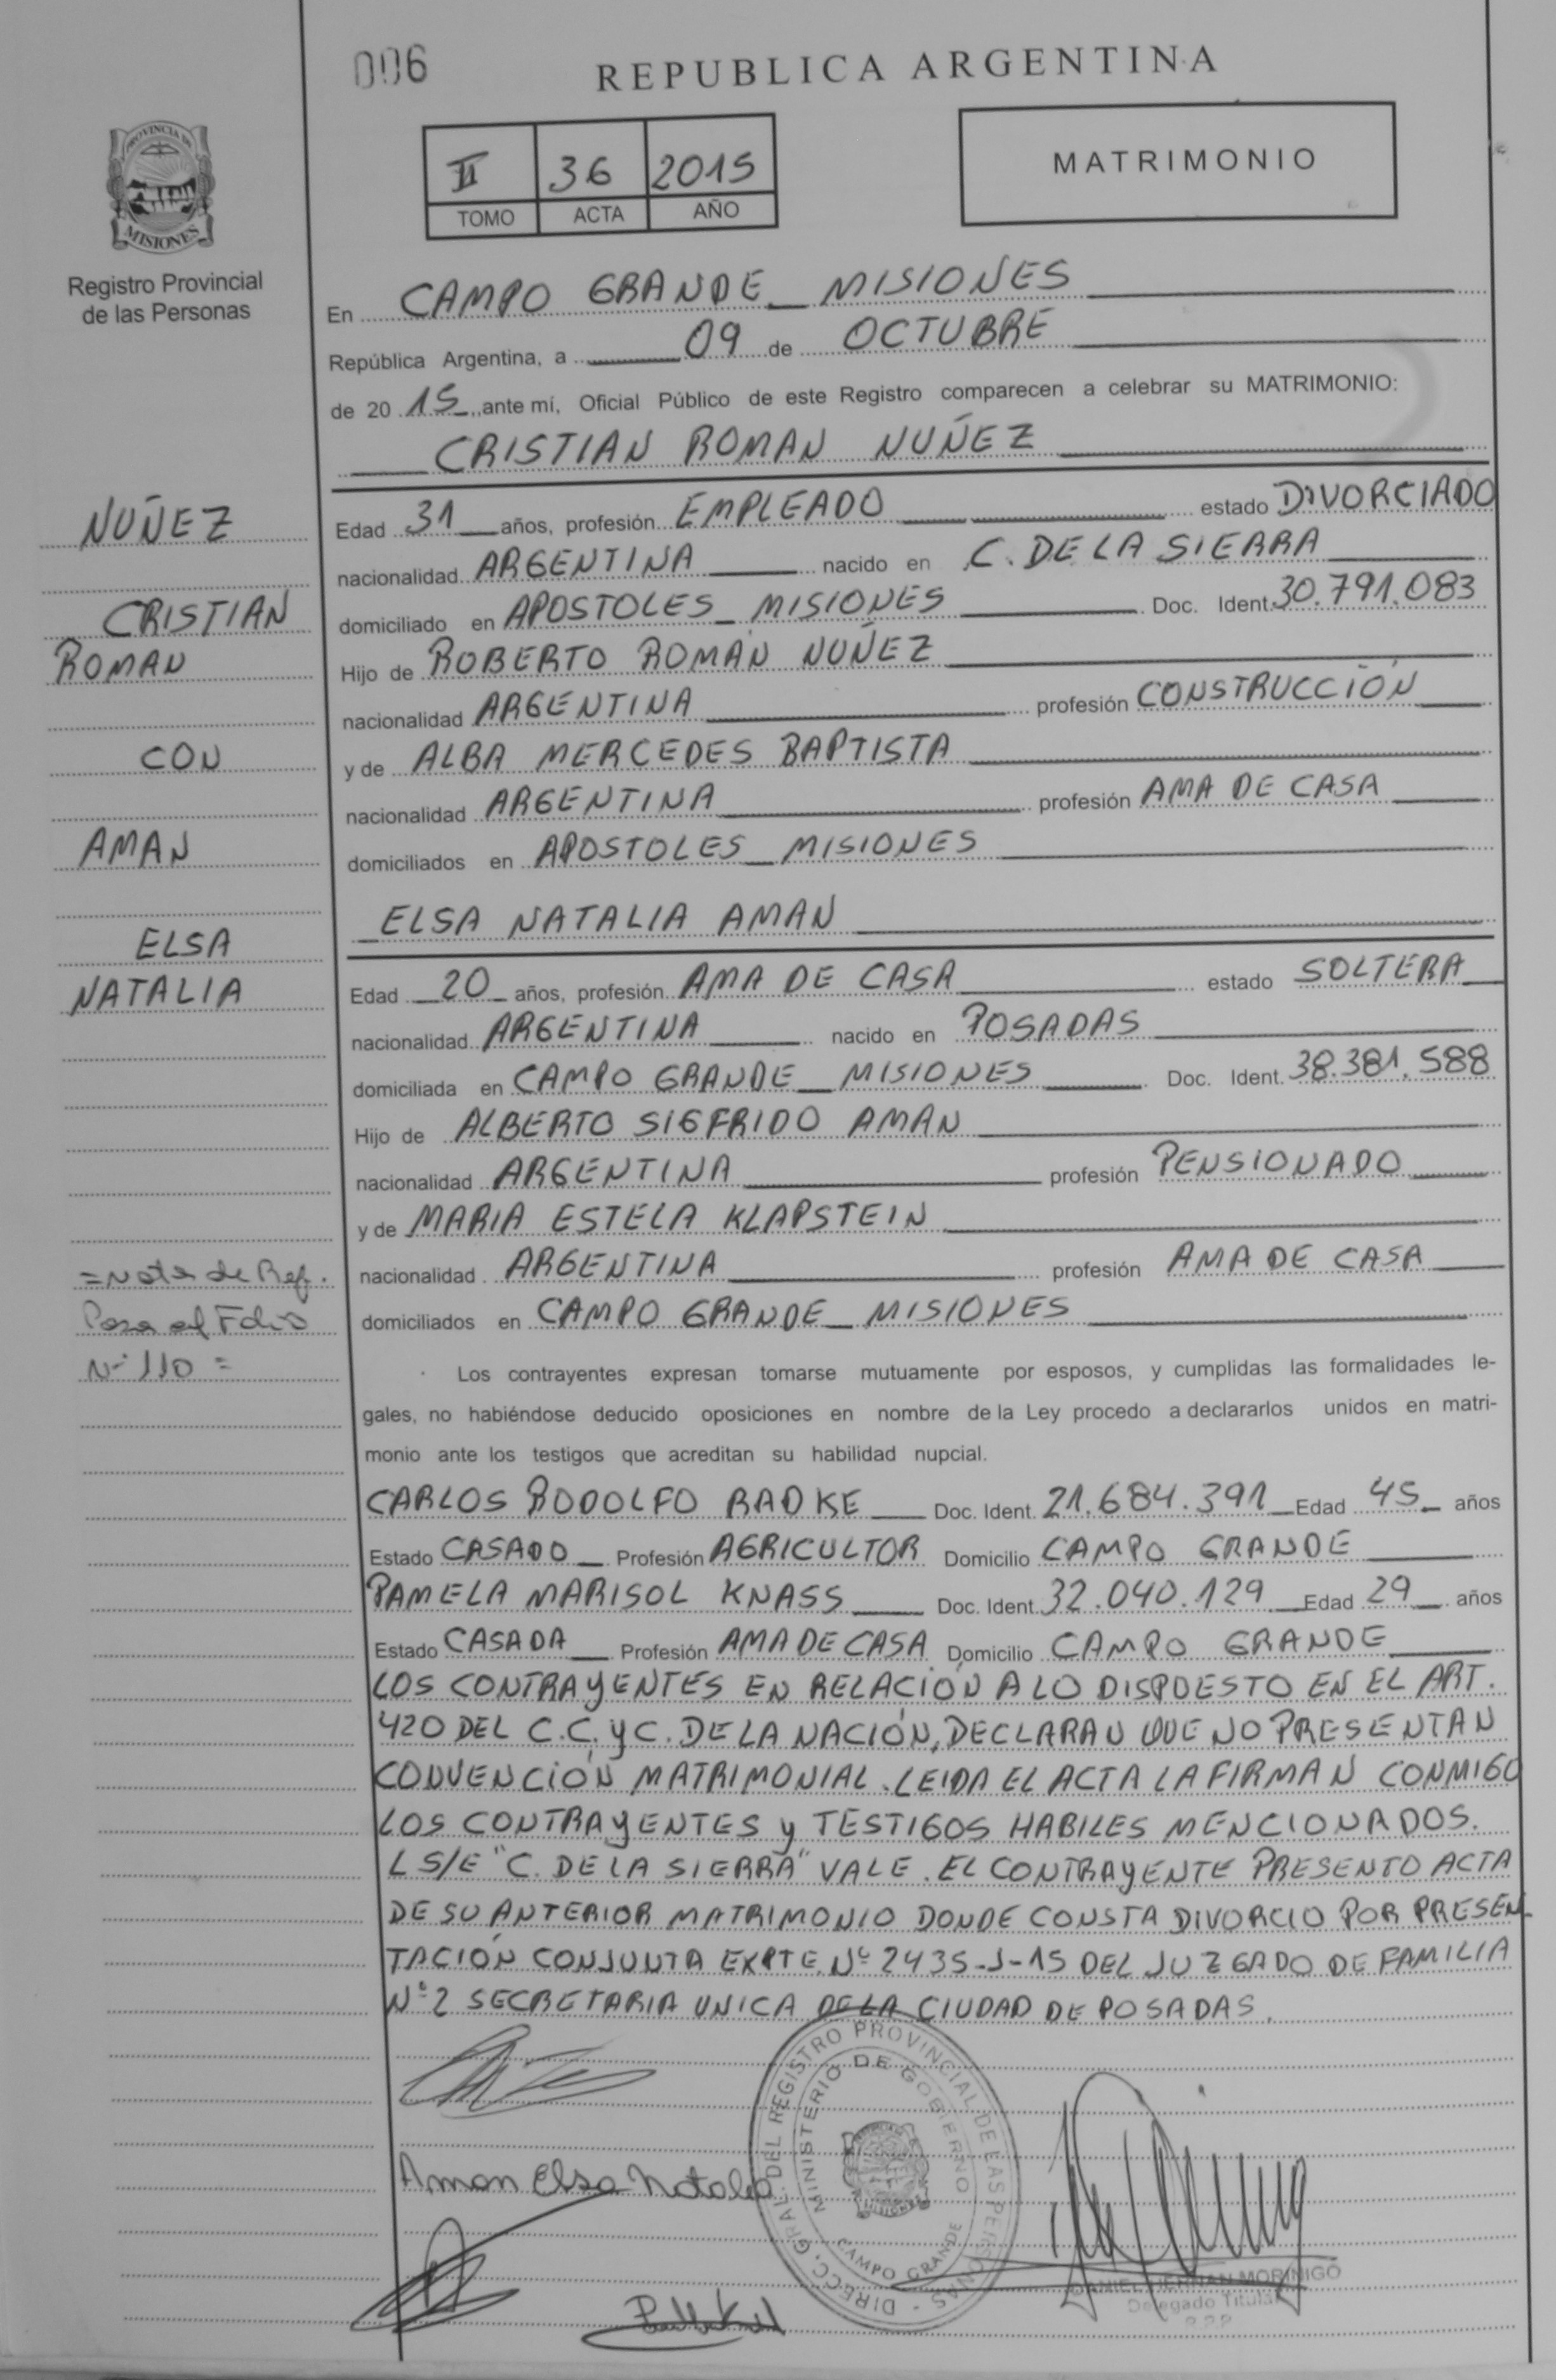 006
REPUBLICA ARGENTINA
PROVINCIA DE
MISIONES
Registro Provincial
de las Personas
II 36 2015
TOMO ACTA AÑO
MATRIMONIO
En CAMPO GRANDE_ MISIONES
República Argentina, a 09 de OCTUBRE
de 20 15 ante mí, Oficial Público de este Registro comparecen a celebrar su MATRIMONIO:
CRISTIAN ROMAN NUÑEZ
NUÑEZ
CRISTIAN
ROMAN
CON
AMAN
ELSA
NATALIA
Edad 31 años, profesión EMPLEADO estado DIVORCIADO
nacionalidad ARGENTINA nacido en C. DE LA SIERRA
domiciliado en APOSTOLES_ MISIONES Doc. Ident. 30.791.083
Hijo de ROBERTO ROMAN NUÑEZ
nacionalidad ARGENTINA profesión CONSTRUCCIÓN
y de ALBA MERCEDES BAPTISTA
nacionalidad ARGENTINA profesión AMA DE CASA
domiciliados en APOSTOLES_ MISIONES
ELSA NATALIA AMAN
Edad 20 años, profesión AMA DE CASA estado SOLTERA
nacionalidad ARGENTINA nacido en POSADAS
domiciliada en CAMPO GRANDE_ MISIONES Doc. Ident. 38.381.588
Hijo de ALBERTO SIGFRIDO AMAN
nacionalidad ARGENTINA profesión PENSIONADO
y de MARIA ESTELA KLAPSTEIN
nacionalidad ARGENTINA profesión AMA DE CASA
domiciliados en CAMPO GRANDE_ MISIONES
=Nota de Ref.
Pasa al Folio
Nº 110 =
Los contrayentes expresan tomarse mutuamente por esposos, y cumplidas las formalidades le-
gales, no habiéndose deducido oposiciones en nombre de la Ley procedo a declararlos unidos en matri-
monio ante los testigos que acreditan su habilidad nupcial.
CARLOS RODOLFO RADKE Doc. Ident. 21.684.391 Edad 45 años
Estado CASADO Profesión AGRICULTOR Domicilio CAMPO GRANDE
PAMELA MARISOL KNASS Doc. Ident. 32.040.129 Edad 29 años
Estado CASADA Profesión AMA DE CASA Domicilio CAMPO GRANDE
LOS CONTRAYENTES EN RELACIÓN A LO DISPUESTO EN EL ART.
420 DEL C.C. y C. DE LA NACIÓN, DECLARAN QUE NO PRESENTAN
CONVENCIÓN MATRIMONIAL. LEIDA EL ACTA LA FIRMAN CONMIGO
LOS CONTRAYENTES y TESTIGOS HABILES MENCIONADOS.
L S/E "C. DE LA SIERRA" VALE. EL CONTRAYENTE PRESENTO ACTA
DE SU ANTERIOR MATRIMONIO DONDE CONSTA DIVORCIO POR PRESEN_
TACIÓN CONJUNTA EXPTE. Nº 2435-J-15 DEL JUZGADO DE FAMILIA
Nº 2 SECRETARIA UNICA DE LA CIUDAD DE POSADAS.
Aman Elsa Natalia
DIRECC. GRAL. DEL REGISTRO PROVINCIAL DE LAS PERSONAS
MINISTERIO DE GOBIERNO
CAMPO GRANDE
DANIEL HERNAN MORINIGO
Delegado Titular
R.P.P.